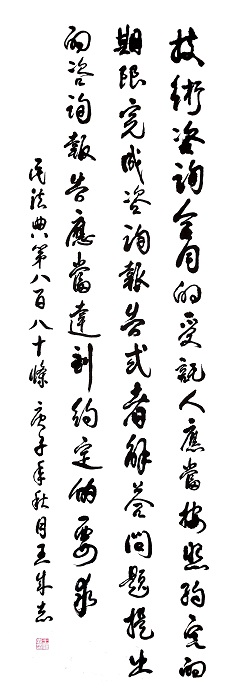 技術咨詢合同的受託人應當按照約定的
期限完成咨詢報告或者解答問題提出
的咨詢報告應當達到約定的要求
民法典第八百八十條 庚子年秋月王成志